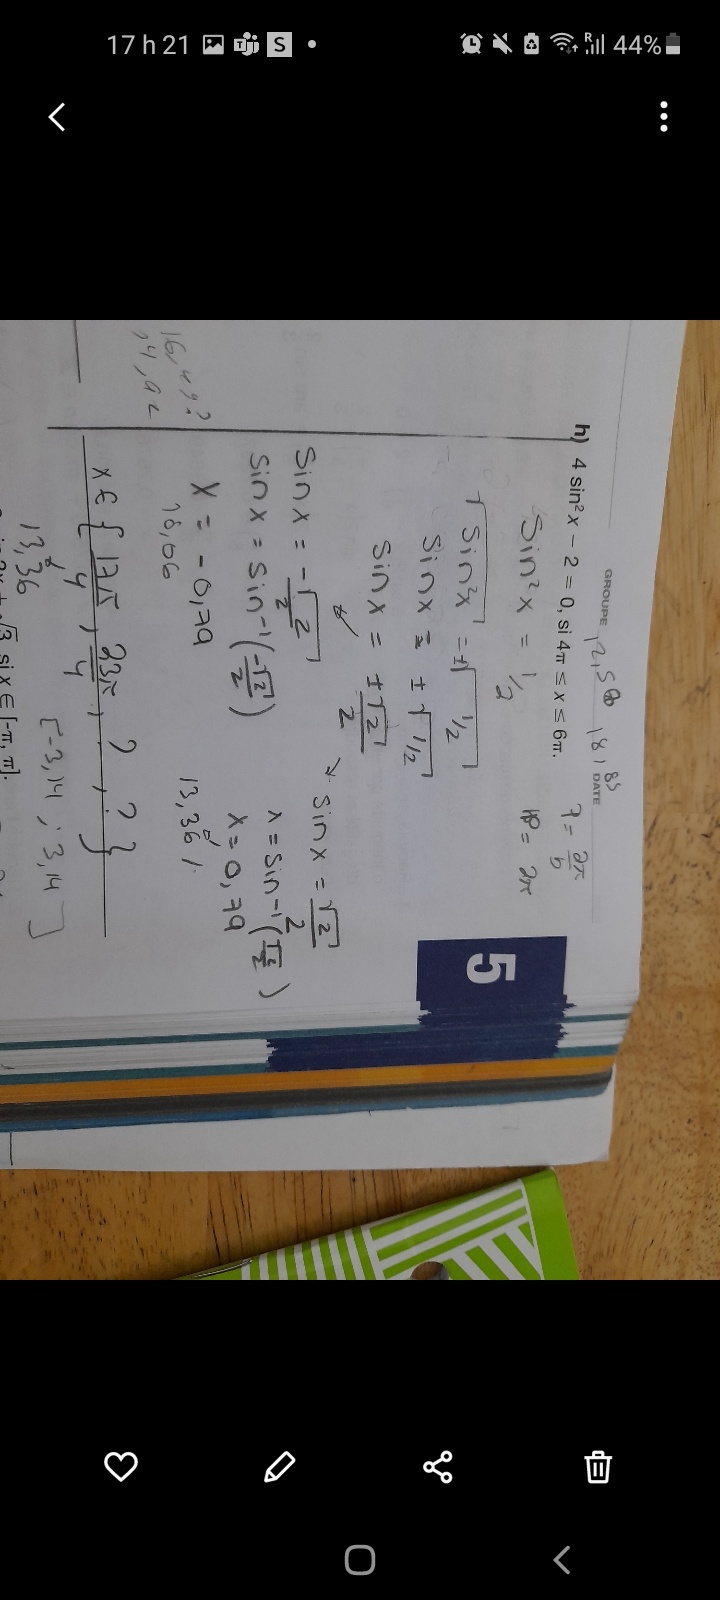 17 h 21
S
44%
GROUPE
12,56
18,85
DATE
h) 4 sin²x − 2 = 0, si 4π ≤ x ≤ 6π.
P = 2π/b
P = 2π
Sin²x = 1/2
√Sin²x = ±√1/2
Sinx = ±√1/2
Sinx = ±√2/2
Sinx = -√2/2
Sinx = √2/2
Sinx = Sin⁻¹(-√2/2)
x = Sin⁻¹(√2/2)
x = -0,79
x = 0,79
18,06
13,36
x ∈ { 17π/4, 23π/4, ?, ? }
13,36
[-3,14 ; 3,14]
√3, si x ∈ [-π, π].
5